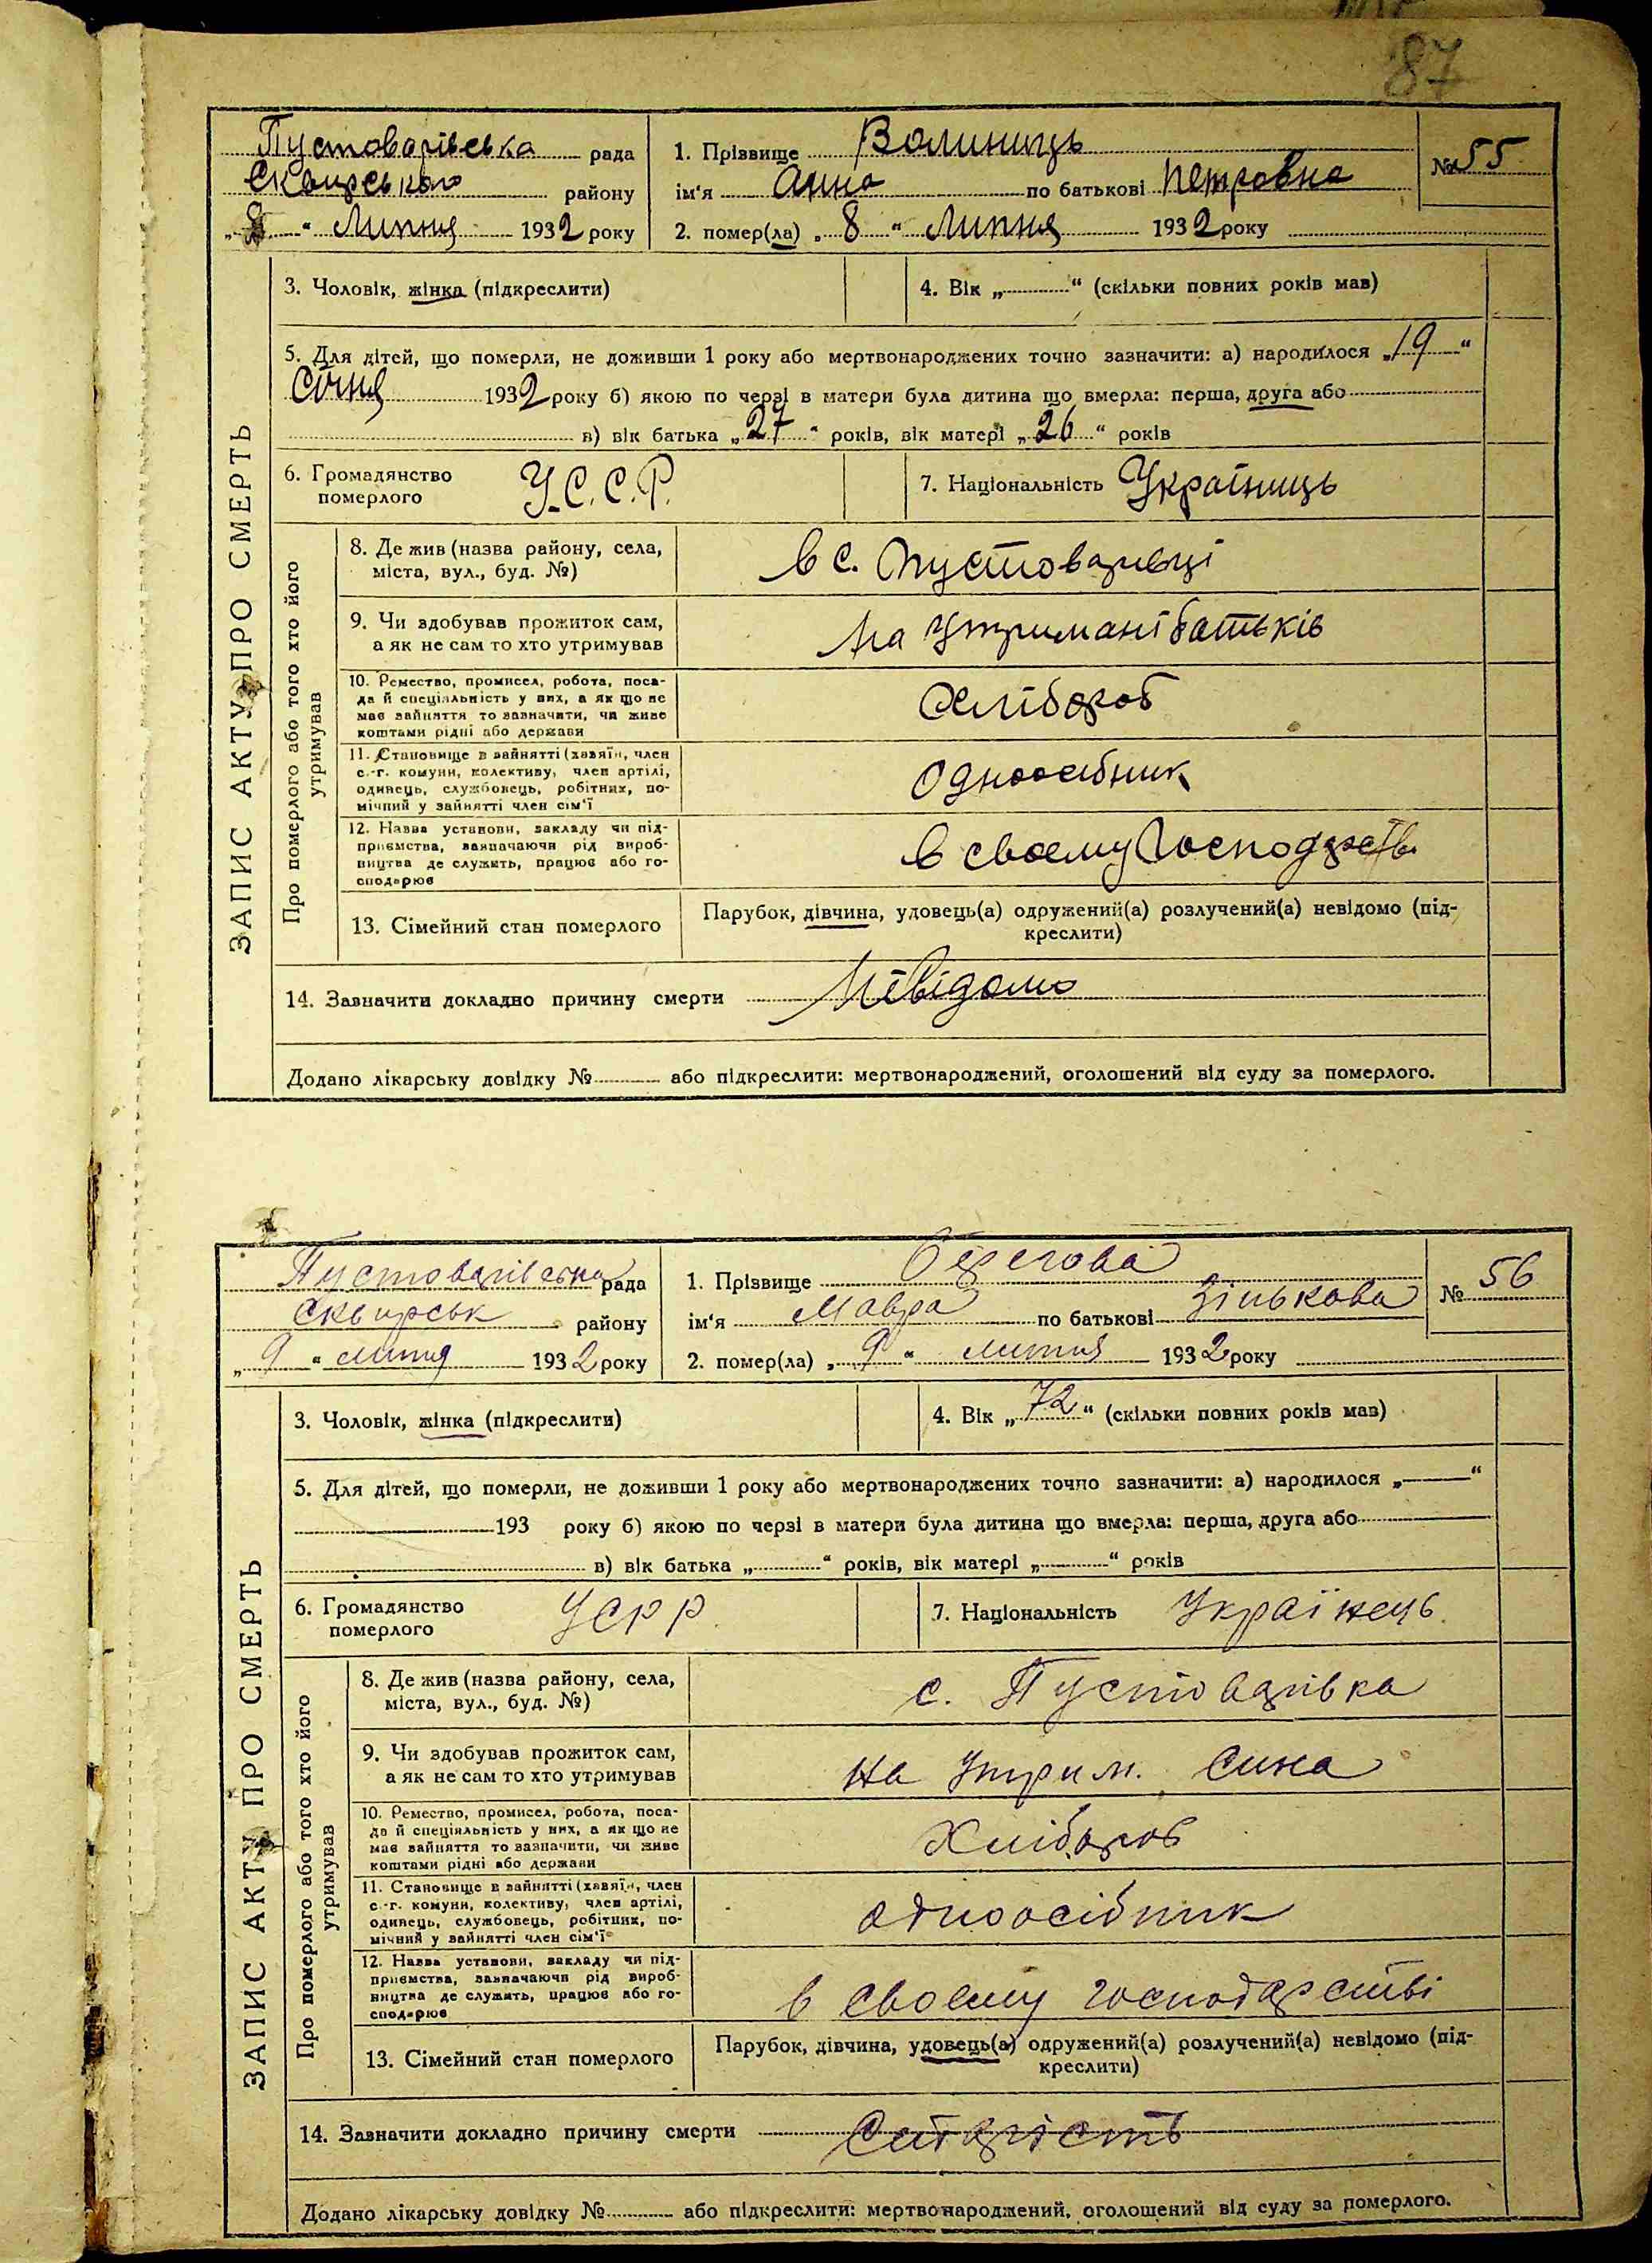 87
Пустоварівська рада
Сквирського району
„8“ Липня 1932 року
1. Прізвище Волинець
ім'я Анна по батькові Петровна
2. помер(ла) „8“ Липня 1932 року
№ 55
ЗАПИС АКТУ ПРО СМЕРТЬ
3. Чоловік, жінка (підкреслити)
4. Вік „ “ (скільки повних років мав)
5. Для дітей, що померли, не доживши 1 року або мертвонароджених точно зазначити: а) народилося „19“
Січня 1932 року б) якою по черзі в матери була дитина що вмерла: перша, друга або
в) вік батька „27“ років, вік матері „26“ років
6. Громадянство
померлого
У.С.С.Р.
7. Національність Українець
Про померлого або того хто його
утримував
8. Де жив (назва району, села,
міста, вул., буд. №)
в с. Пустоварівці
9. Чи здобував прожиток сам,
а як не сам то хто утримував
На утримані батьків
10. Ремество, промисел, робота, поса-
да й спеціяльність у них, а як що не
має зайняття то зазначити, чи живе
коштами рідні або держави
Хлібороб
11. Становище в зайнятті (хазяїн, член
с.-г. комуни, колективу, член артілі,
одинець, службовець, робітник, по-
мічний у зайнятті член сім'ї
Одноосібник
12. Назва установи, закладу чи під-
приємства, зазначаючи рід вироб-
ництва де служить, працює або го-
сподарює
в своєму господарстві
13. Сімейний стан померлого
Парубок, дівчина, удовець(а) одружений(а) розлучений(а) невідомо (під-
креслити)
14. Зазначити докладно причину смерти Невідомо
Додано лікарську довідку № або підкреслити: мертвонароджений, оголошений від суду за померлого.
Пустоварівська рада
Сквирськ району
„9“ липня 1932 року
1. Прізвище Берегова
ім'я Мавра по батькові Зінькова
2. помер(ла) „9“ липня 1932 року
№ 56
ЗАПИС АКТУ ПРО СМЕРТЬ
3. Чоловік, жінка (підкреслити)
4. Вік „72“ (скільки повних років мав)
5. Для дітей, що померли, не доживши 1 року або мертвонароджених точно зазначити: а) народилося „ “
193 року б) якою по черзі в матери була дитина що вмерла: перша, друга або
в) вік батька „ “ років, вік матері „ “ років
6. Громадянство
померлого
УСРР
7. Національність Українець
Про померлого або того хто його
утримував
8. Де жив (назва району, села,
міста, вул., буд. №)
с. Пустоварівка
9. Чи здобував прожиток сам,
а як не сам то хто утримував
на утрим. сина
10. Ремество, промисел, робота, поса-
да й спеціяльність у них, а як що не
має зайняття то зазначити, чи живе
коштами рідні або держави
Хлібороб
11. Становище в зайнятті (хазяїн, член
с.-г. комуни, колективу, член артілі,
одинець, службовець, робітник, по-
мічний у зайнятті член сім'ї
одноосібник
12. Назва установи, закладу чи під-
приємства, зазначаючи рід вироб-
ництва де служить, працює або го-
сподарює
в своєму господарстві
13. Сімейний стан померлого
Парубок, дівчина, удовець(а) одружений(а) розлучений(а) невідомо (під-
креслити)
14. Зазначити докладно причину смерти Старість
Додано лікарську довідку № або підкреслити: мертвонароджений, оголошений від суду за померлого.